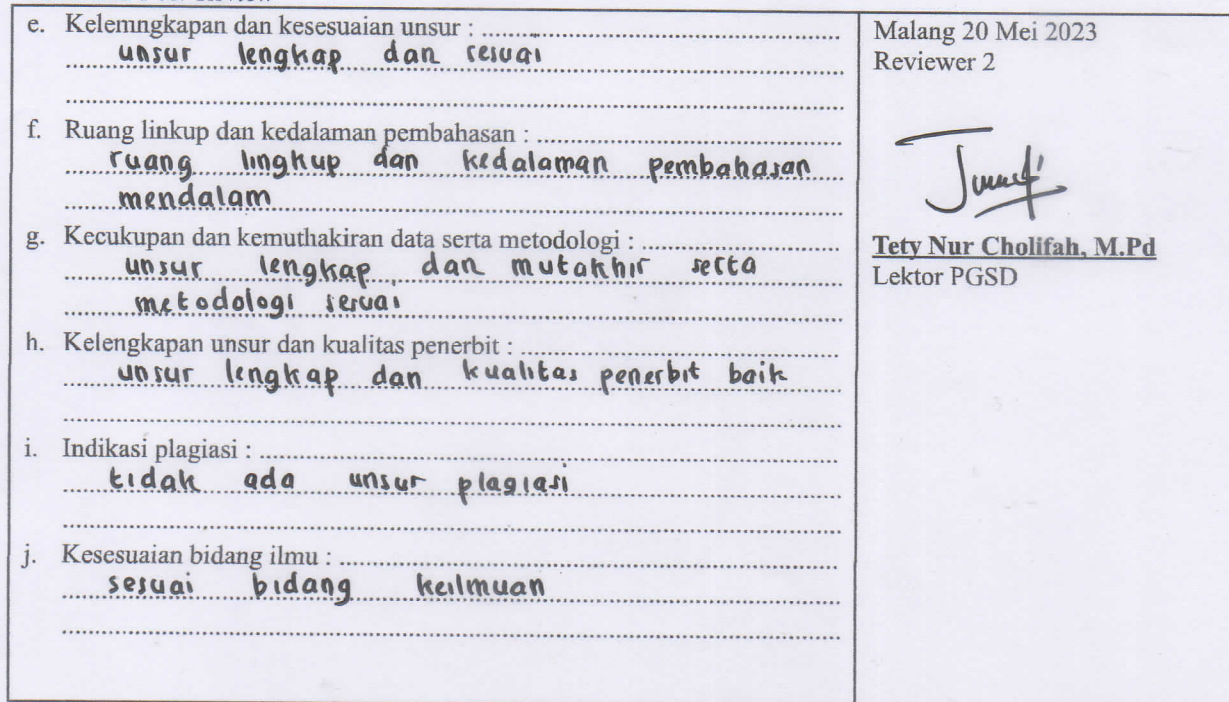 e. Kelemngkapan dan kesesuaian unsur :
unsur lengkap dan sesuai
f. Ruang linkup dan kedalaman pembahasan :
ruang lingkup dan kedalaman pembahasan
mendalam
g. Kecukupan dan kemuthakiran data serta metodologi :
unsur lengkap dan mutakhir serta
metodologi sesuai
h. Kelengkapan unsur dan kualitas penerbit :
unsur lengkap dan kualitas penerbit baik
i. Indikasi plagiasi :
tidak ada unsur plagiasi
j. Kesesuaian bidang ilmu :
sesuai bidang keilmuan
Malang 20 Mei 2023
Reviewer 2
Tety Nur Cholifah, M.Pd
Lektor PGSD